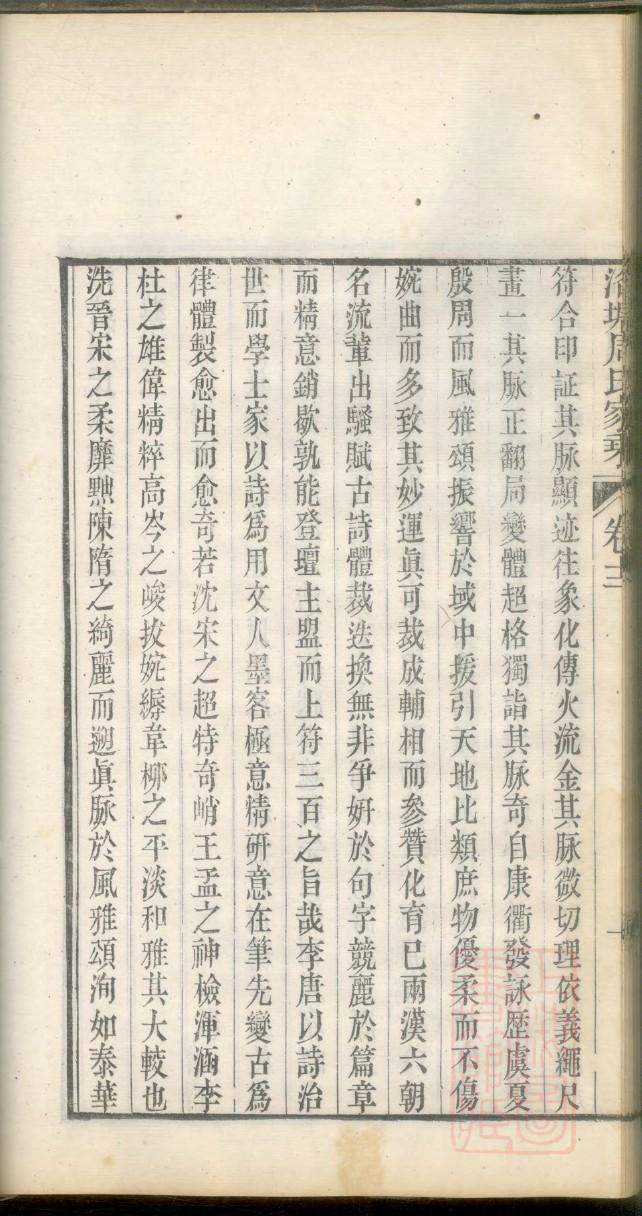 周氏家乘 卷十二
符合印証其脉顯迹往象化傳火流金其脉微切理依義繩尺
畫一其脉正翻局變體超格獨詣其脉奇自康衢發詠歷虞夏
殷周而風雅頌振響於域中援引天地比類庶物優柔而不傷
婉曲而多致其妙運眞可裁成輔相而參贊化育已兩漢六朝
名流軰出騷賦古詩體裁迭換無非爭妍於句字競麗於篇章
而精意銷歇孰能登壇主盟而上符三百之旨哉李唐以詩治
世而學士家以詩爲用文人墨客極意精研意在筆先變古爲
律體製愈出而愈奇若沈宋之超特奇峭王孟之神檢渾涵李
杜之雄偉精粹高岑之峻拔婉縟韋桺之平淡和雅其大較也
洗晉宋之柔靡黜陳隋之綺麗而遡眞脉於風雅頌洵如泰華